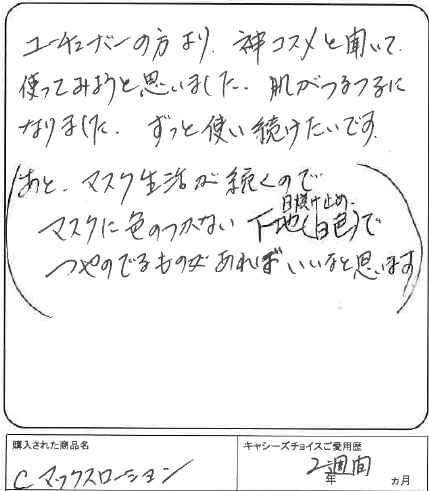 ユーチューバーの方より、神コスメと聞いて、
使ってみようと思いました。肌がつるつるに
なりました。ずっと使い続けたいです。
(あと、マスク生活が続くので
日焼け止め、
マスクに色のつかない 下地(白色)で
つやのでるものがあればいいなと思います)
購入された商品名
Cマックスローション
キャシーズチョイスご愛用歴
2週間
年 ヵ月